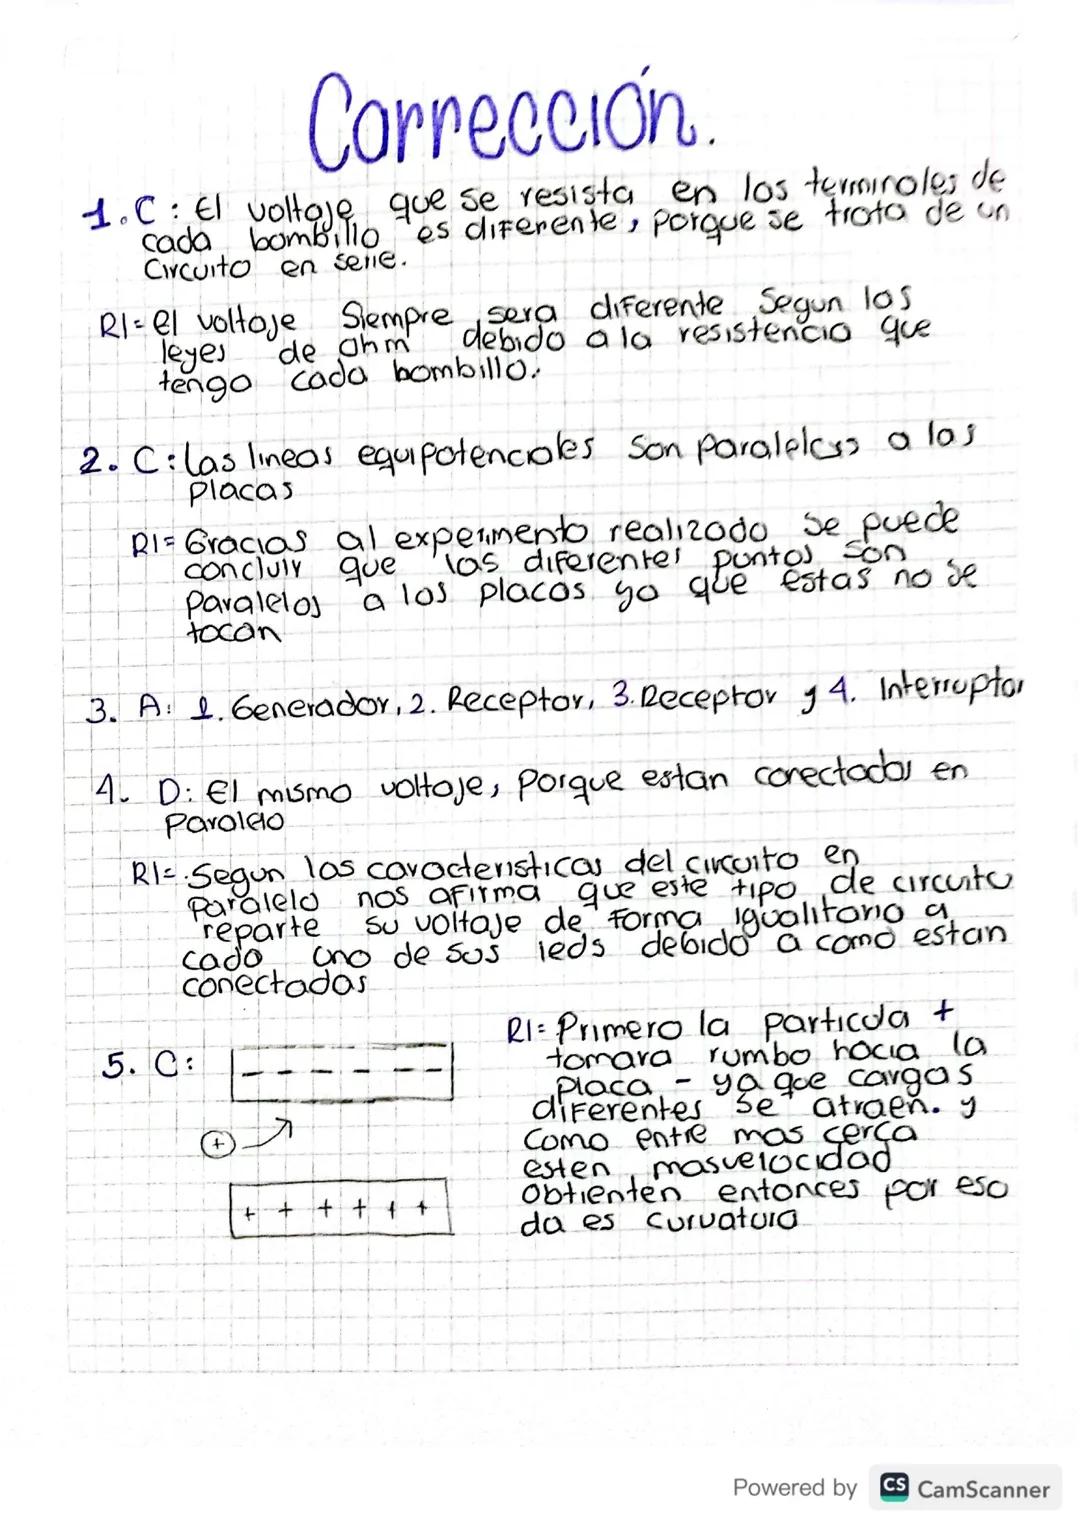 Corrección.
1. C: El voltaje que se resista en los terminales de
cada bombillo es diferente, porque se trata de un
Circuito en serie.
R1= el voltaje Siempre sera diferente Segun las
leyes de Ohm debido a la resistencia que
tenga cada bombillo.
2. C: las lineas equipotenciales son paralelas a las
placas
R1= Gracias al experimento realizado se puede
concluir que las diferentes puntos son
paralelos a las placas ya que estas no se
tocan
3. A: 1. Generador, 2. Receptor, 3. Receptor y 4. Interruptor
4. D: El mismo voltaje, Porque estan conectados en
Paralelo
R1= Segun las caracteristicas del circuito en
Paralelo nos afirma que este tipo de circuito
reparte su voltaje de forma igualitaria a
cada uno de sus leds debido a como estan
conectadas
5. C:
- - - - - -
+
+ + + + + +
R1= Primero la particula +
tomara rumbo hacia la
placa - ya que cargas
diferentes se atraen. y
como entre mas cerca
esten mas velocidad
obtienten entonces por eso
da es curvatura
Powered by CS CamScanner